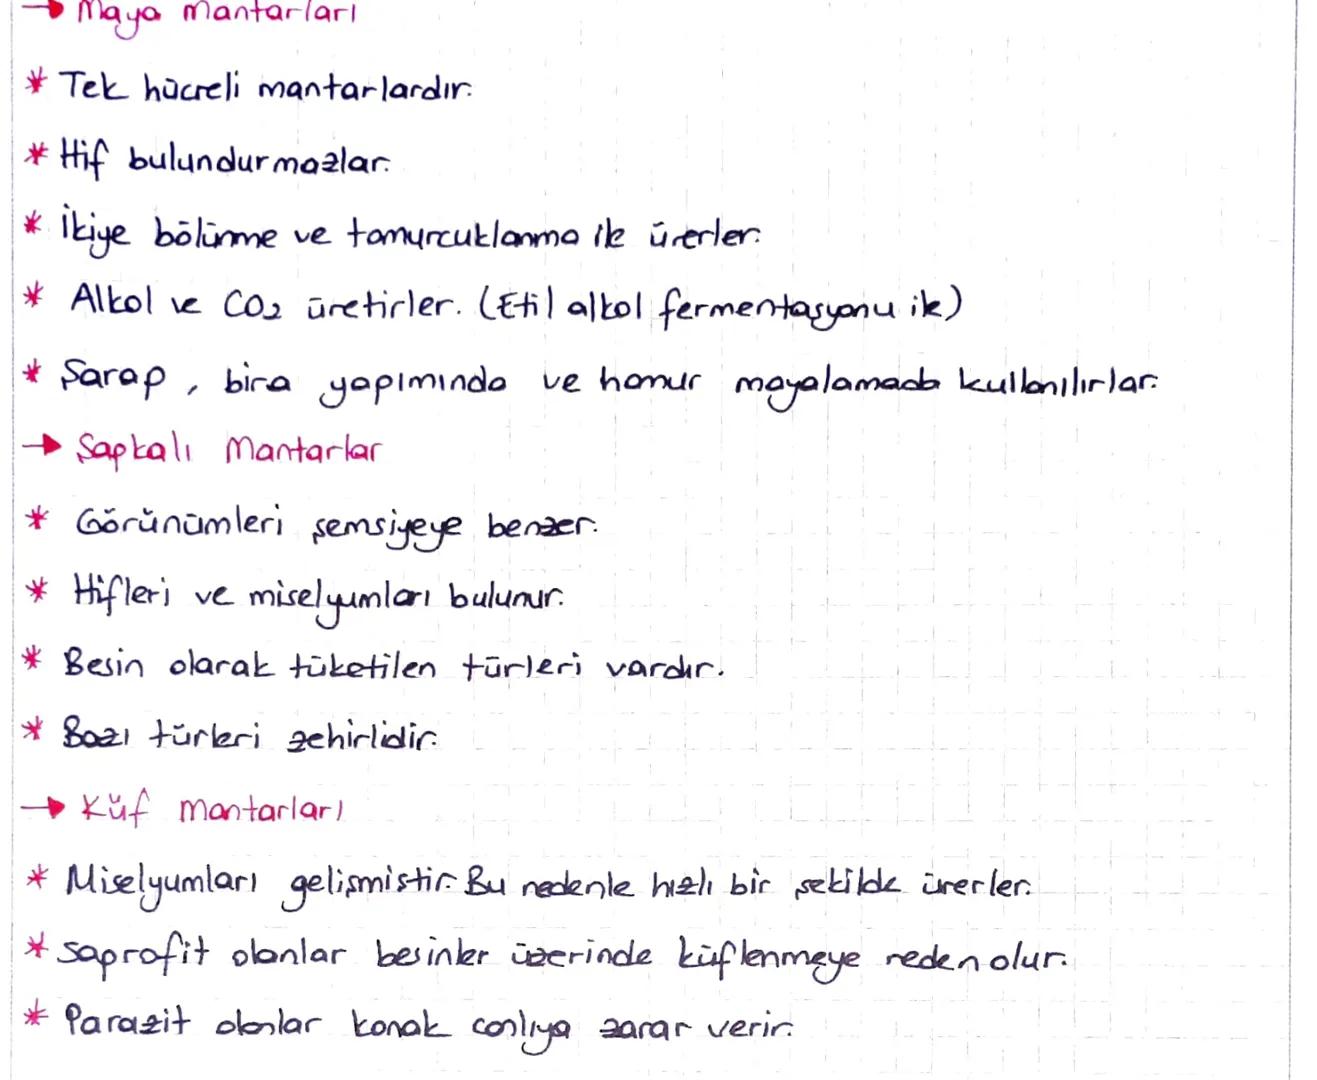 → Maya mantarları
* Tek hücreli mantarlardır.
* Hif bulundurmazlar.
* İkiye bölünme ve tomurcuklanma ile ürerler.
* Alkol ve CO₂ üretirler. (Etil alkol fermentasyonu ile)
* Şarap, bira yapımında ve hamur mayalamada kullanılırlar.
→ Şapkalı Mantarlar
* Görünümleri şemsiyeye benzer.
* Hifleri ve miselyumları bulunur.
* Besin olarak tüketilen türleri vardır.
* Bazı türleri zehirlidir.
→ Küf Mantarları
* Miselyumları gelişmiştir. Bu nedenle hızlı bir şekilde ürerler.
* Saprofit olanlar besinler üzerinde küflenmeye neden olur.
* Parazit olanlar konak canlıya zarar verir.